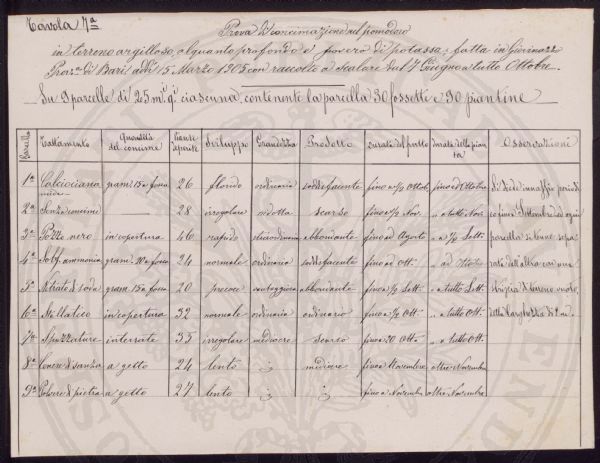 Tavola 7ª
Prova di concimazione nel pomodoro
in terreno argilloso, alquanto profondo e povero di potassa: fatta in Giovinazzo
Prov.ª di Bari addì 15 Marzo 1905 con raccolto a scalare dal 7 Giugno a tutto Ottobre.
Su 9 parcelle di 25 m.i q.i ciascuna, contenente la parcella 30 fossette e 90 piantine
Parcelle Trattamento Quantità del concime Piante deperite Sviluppo Grandezza Prodotto Durata del frutto Durata della pianta Osservazioni
1ª Calciociana-mide gram. 15 a fossa 26 florido ordinaria soddisfacente fino a ½ Ottob. fino ad Ottobre Si diede innaffio periodi-
2ª Senza concimi — 28 irregolare ridotta scarso fino a ½ Nov. " a tutto Nov. co fino a Settembre ed ogni
3ª Pozzo nero in copertura 46 rapido straordinaria abbondante fino ad Agosto " a ½ Sett. parcella si tenne sepa-
4ª Solf. ammonico gram. 10 a fossa 24 normale ordinaria soddisfacente fino ad Ott. " ad Ottobre rata dall'altra con una
5ª Nitrato di soda gram. 15 a fossa 20 precoce vantaggiosa abbondante fino a ½ Sett. " a tutto Sett. striscia di terreno vuoto,
6ª Stallatico in copertura 32 normale ordinaria ordinario fino a ½ Ott. " a tutto Ott. della larghezza di
7ª Spazzature interrate 35 irregolare mediocre scarso fino a 20 Ott. " a tutto Ott.
8ª Cenere di sansa a getto 24 lento " mediocre fino a Novembre oltre Novembre
9ª Polvere di pietra a getto 27 lento " " fino a Novemb. oltre Novembre